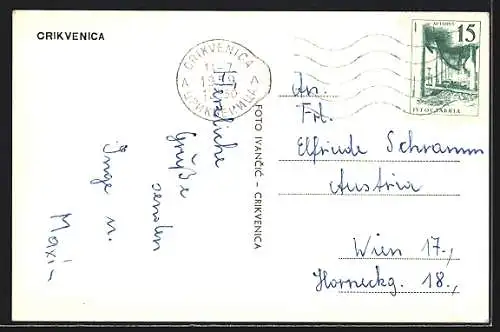 CRIKVENICA
CRIKVENICA
ЦРИКВЕНИЦА
15
JUGOSLAVIJA
Herzliche
Grüße
senden
Inge u.
Maxi
FOTO IVANČIĆ – CRIKVENICA
An.
Frl.
Elfriede Schramm
Austria
Wien 17.,
Horneckg. 18.,